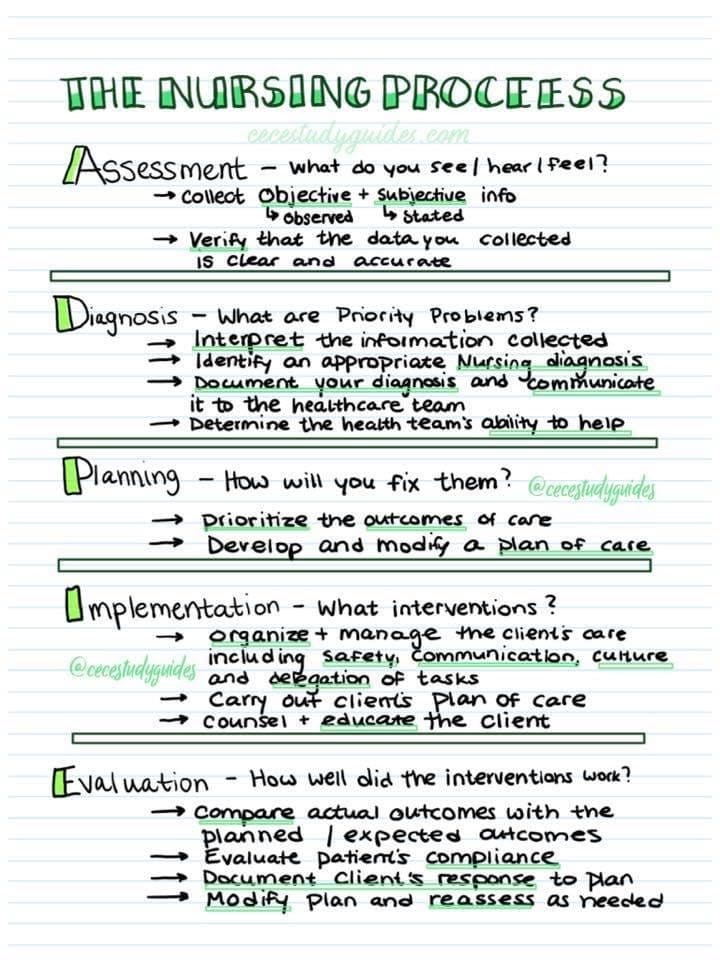 THE NURSING PROCEESS
cecestudyguides.com
Assessment - What do you see/hear/feel?
→ Collect Objective + Subjective info
↳ Observed ↳ Stated
→ Verify that the data you collected
is clear and accurate
Diagnosis - What are Priority Problems?
→ Interpret the information collected
→ Identify an appropriate Nursing diagnosis
→ Document your diagnosis and communicate
it to the healthcare team
→ Determine the health team's ability to help
Planning - How will you fix them? @cecestudyguides
→ Prioritize the outcomes of care
→ Develop and modify a plan of care
Implementation - What interventions?
→ organize + manage the client's care
including safety, communication, culture
@cecestudyguides and delegation of tasks
→ Carry out client's plan of care
→ Counsel + educate the client
Evaluation - How well did the interventions work?
→ Compare actual outcomes with the
planned / expected outcomes
→ Evaluate patient's compliance
→ Document Client's response to plan
→ Modify plan and reassess as needed